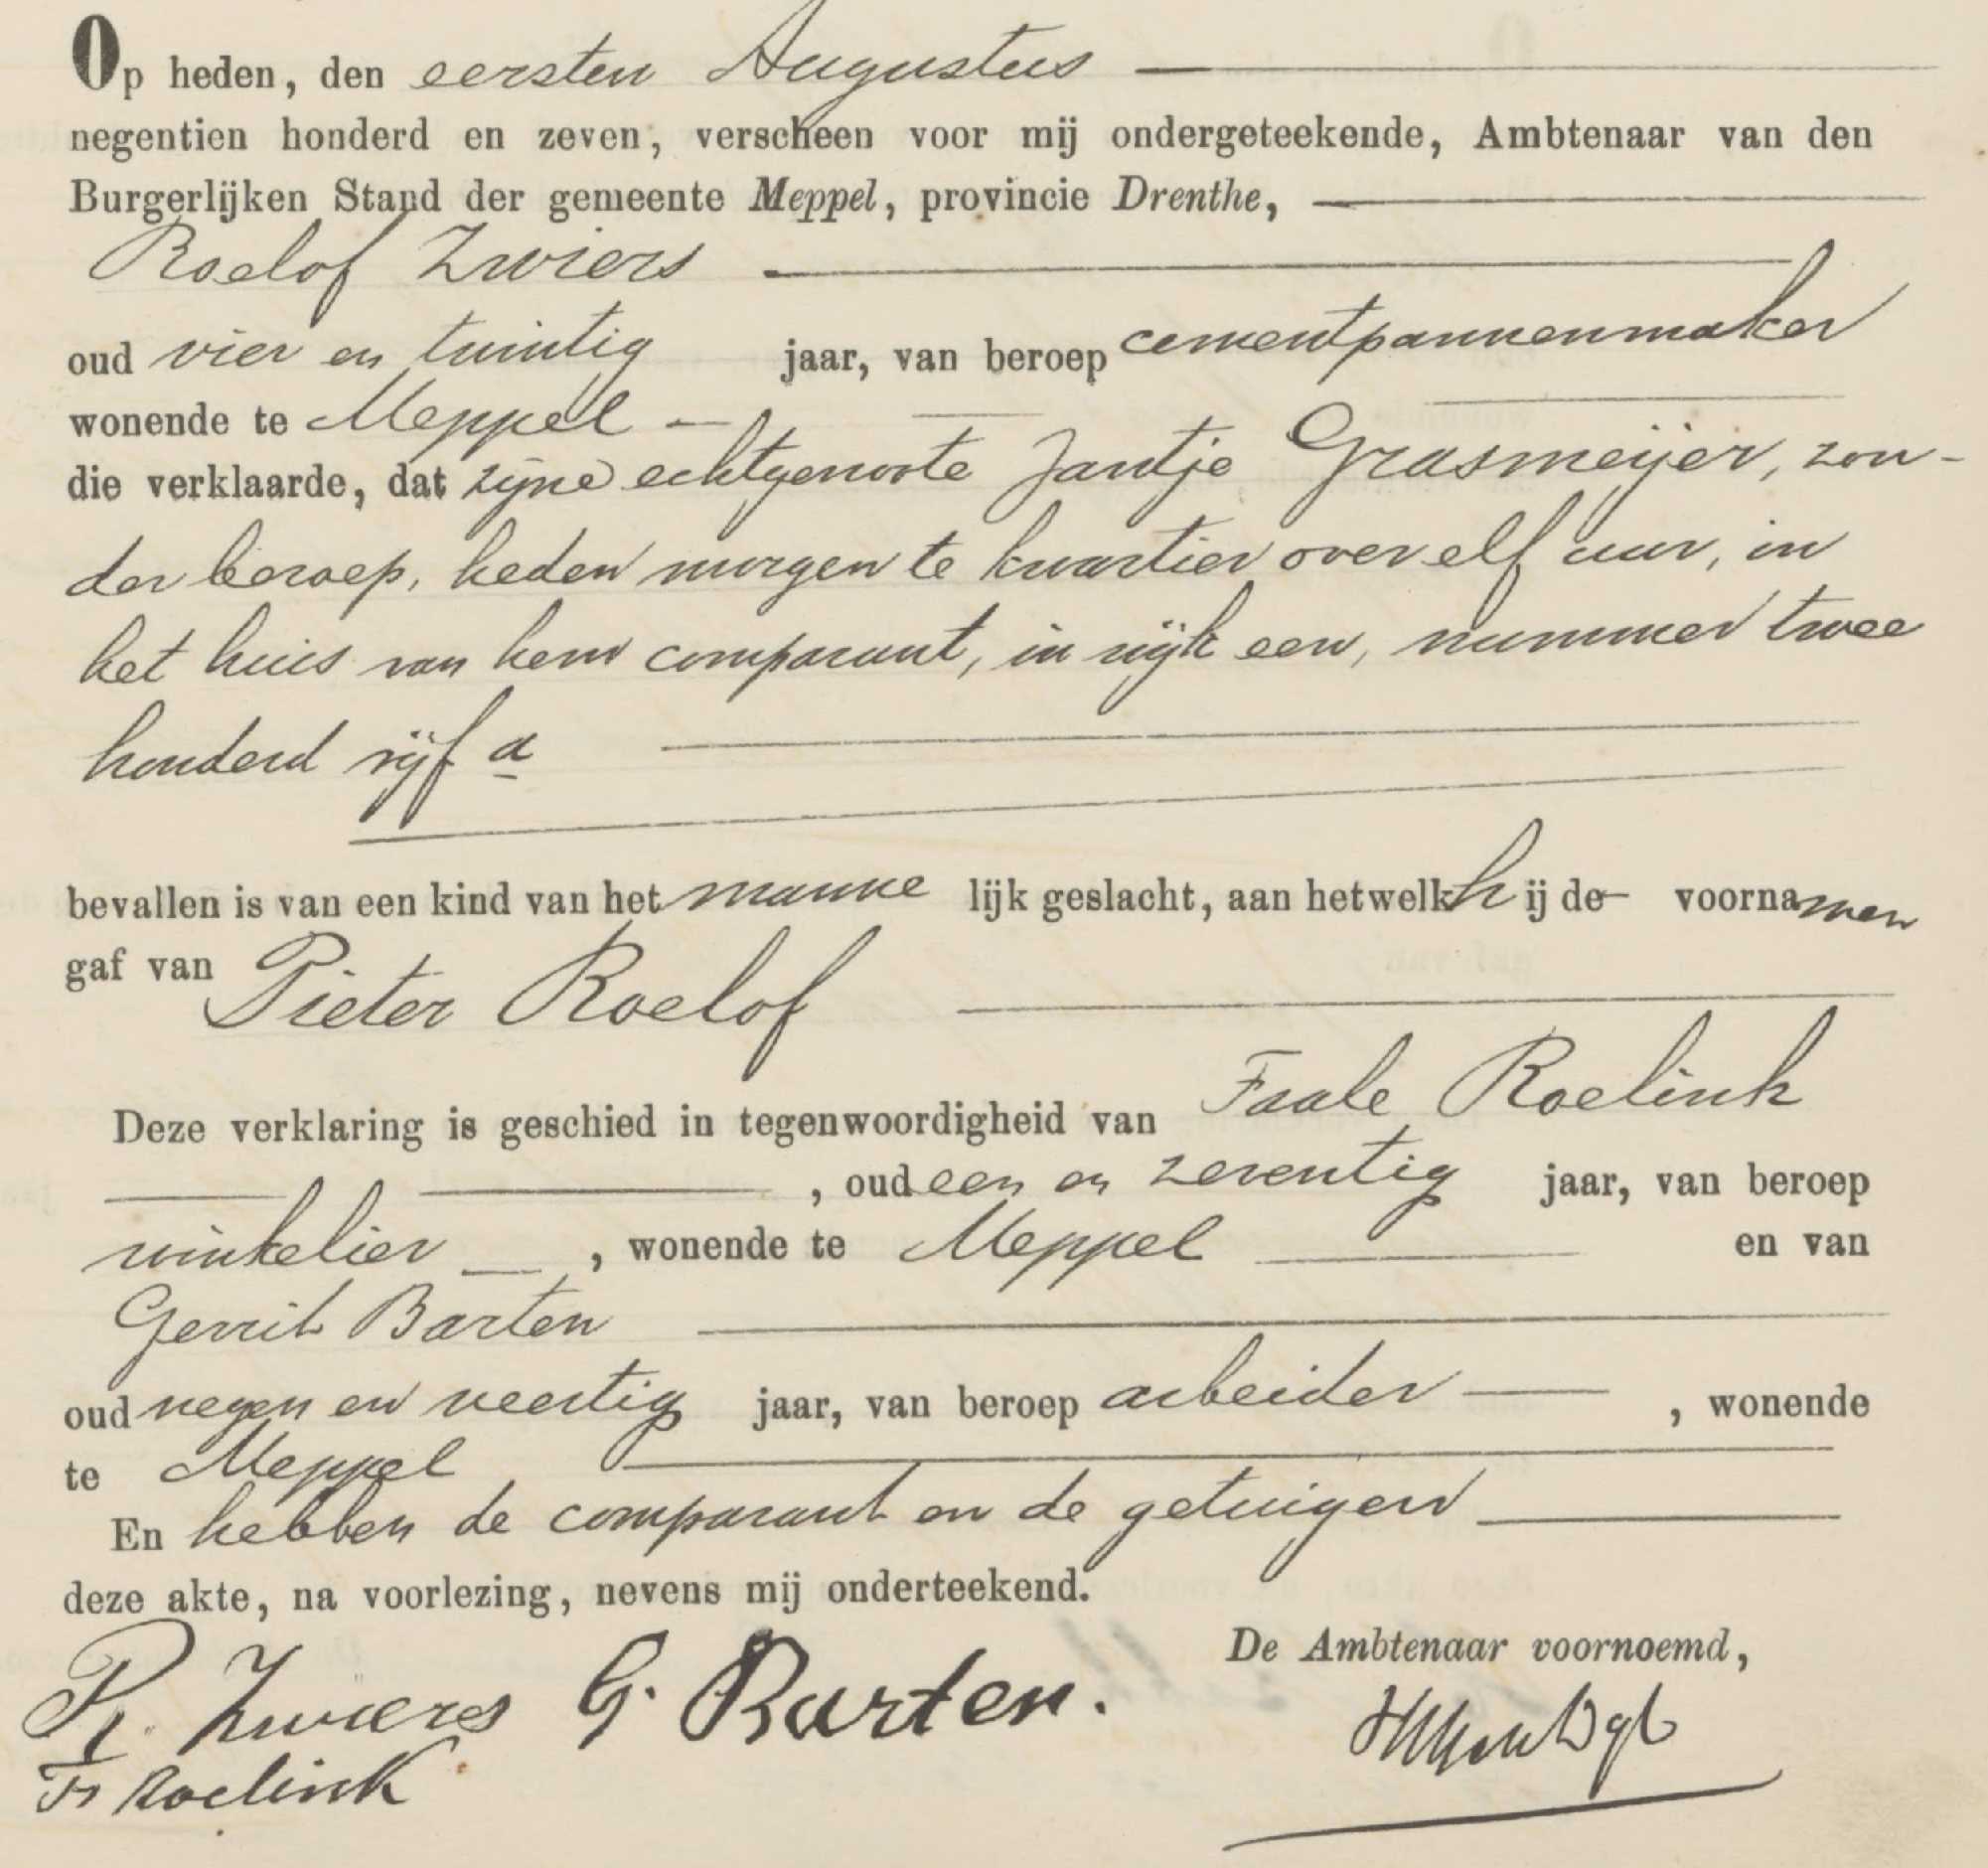 Op heden, den eersten Augustus
negentien honderd en zeven, verscheen voor mij ondergeteekende, Ambtenaar van den
Burgerlijken Stand der gemeente Meppel, provincie Drenthe,
Roelof Zwiers
oud vier en twintig jaar, van beroep cementpannenmaker
wonende te Meppel
die verklaarde, dat zijne echtgenoote Jantje Grasmeijer, zon-
der beroep, heden morgen te kwartier over elf uur, in
het huis van hem comparant, in wijk een, nummer twee
honderd vijf a
bevallen is van een kind van het manne lijk geslacht, aan hetwelk hij de voornamen
gaf van Pieter Roelof
Deze verklaring is geschied in tegenwoordigheid van Faale Roelink
, oud een en zeventig jaar, van beroep
winkelier , wonende te Meppel en van
Gerrit Barten
oud negen en veertig jaar, van beroep arbeider , wonende
te Meppel
En hebben de comparant en de getuigen
deze akte, na voorlezing, nevens mij onderteekend.
De Ambtenaar voornoemd,
R. Zwiers G. Barten.
Fs Roelink